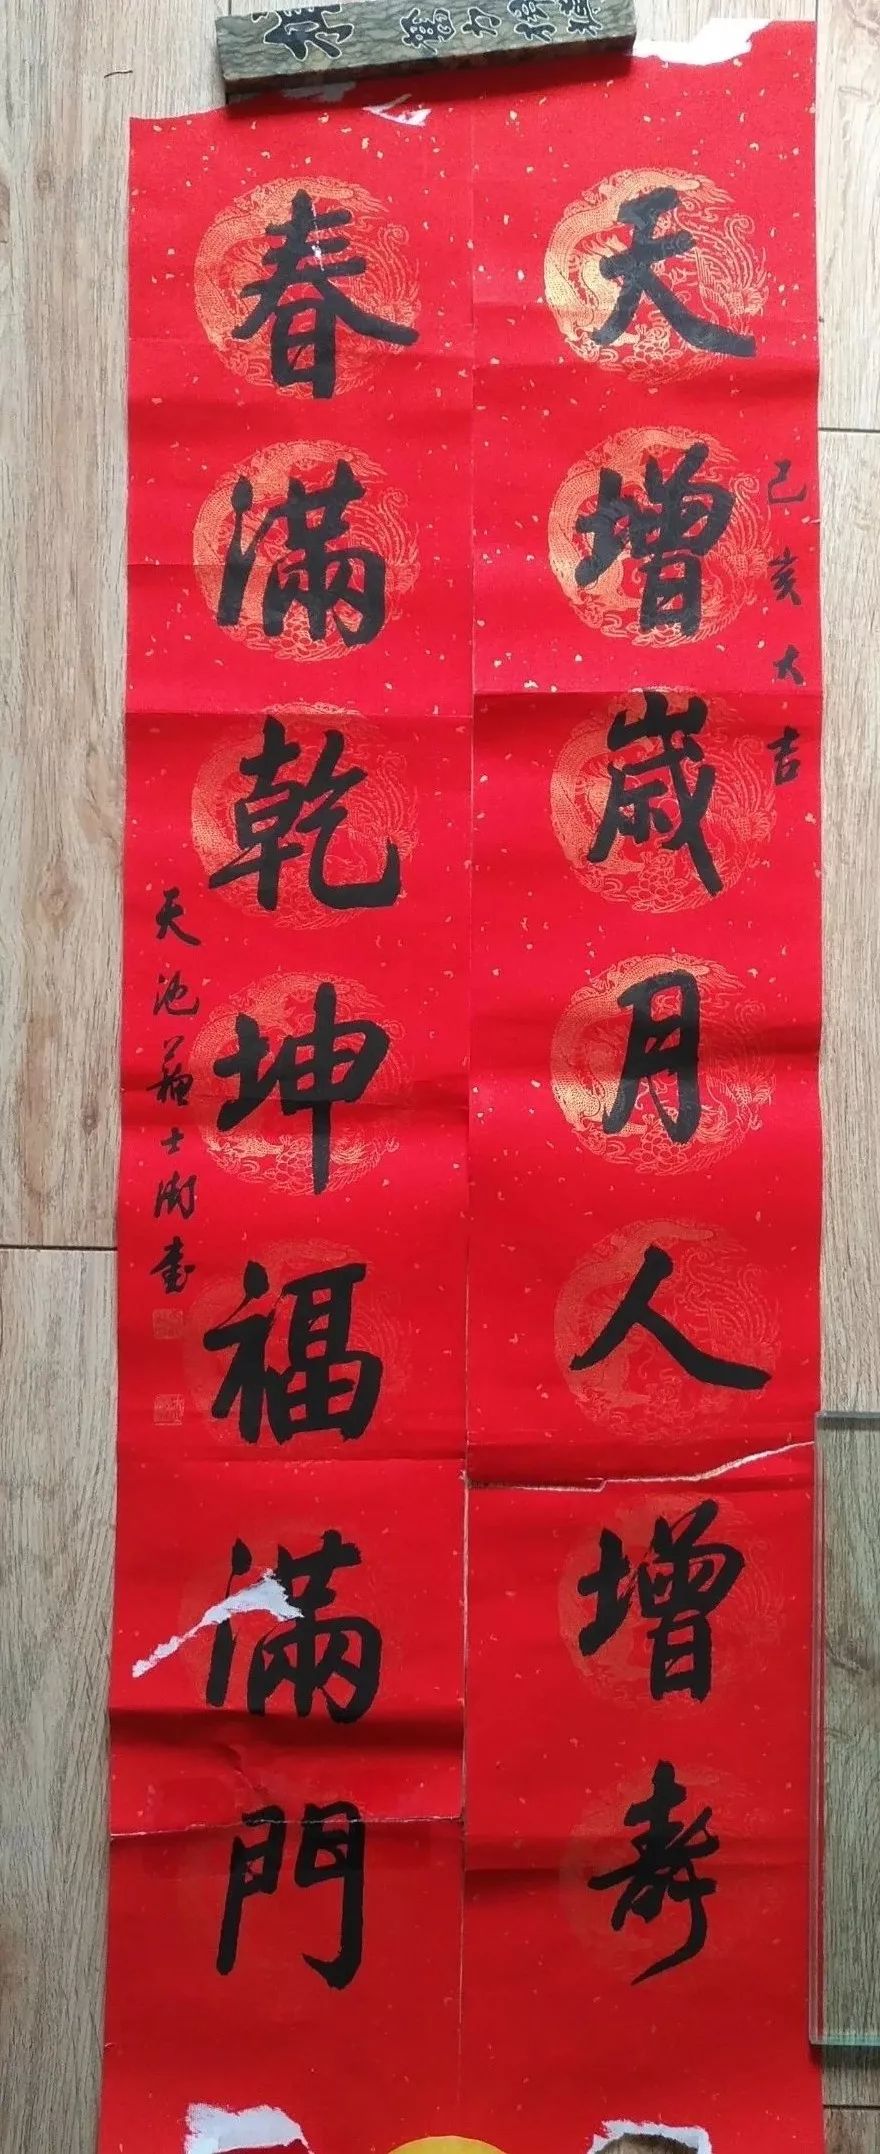 天增歲月人增壽
己亥大吉
春滿乾坤福滿門
天池蘇士澍書